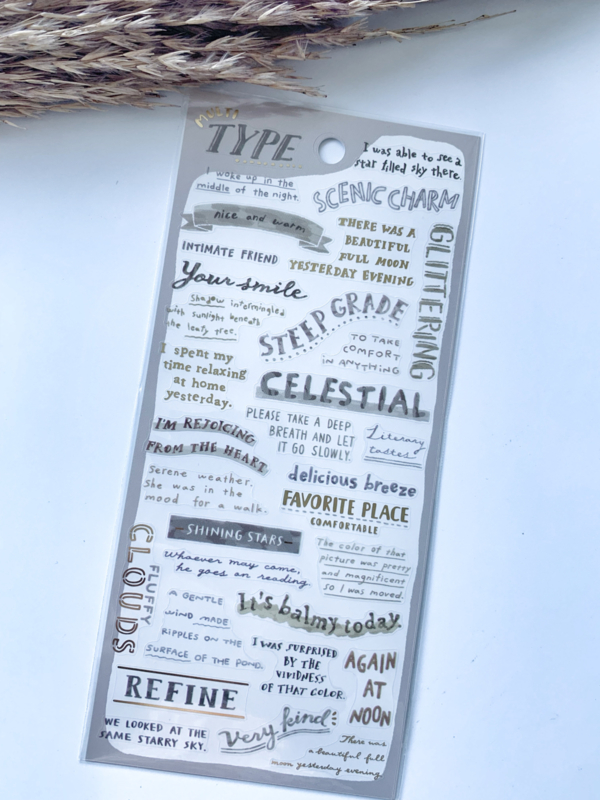 MUTI
TYPE
I was able to see a
star filled sky there.
I woke up in the
middle of the night.
SCENIC CHARM
nice and warm
THERE WAS A
BEAUTIFUL
FULL MOON
YESTERDAY EVENING
GLITTERING
INTIMATE FRIEND
Your smile
Shadow intermingled
with sunlight beneath
the leafy tree.
STEEP GRADE
TO TAKE
COMFORT
IN ANYTHING
I spent my
time relaxing
at home
yesterday.
CELESTIAL
PLEASE TAKE A DEEP
BREATH AND LET
IT GO SLOWLY.
Literary
tastes
I'M REJOICING
FROM THE HEART
Serene weather.
She was in the
mood for a walk.
delicious breeze
FAVORITE PLACE
COMFORTABLE
SHINING STARS
The color of that
picture was pretty
and magnificent
so I was moved.
Whoever may come,
he goes on reading.
FLUFFY
CLOUDS
A GENTLE
WIND MADE
RIPPLES ON THE
SURFACE OF THE POND.
It's balmy today.
I WAS SURPRISED
BY THE
VIVIDNESS
OF THAT COLOR.
AGAIN
AT
NOON
REFINE
WE LOOKED AT THE
SAME STARRY SKY.
very kind
There was
a beautiful full
moon yesterday evening.